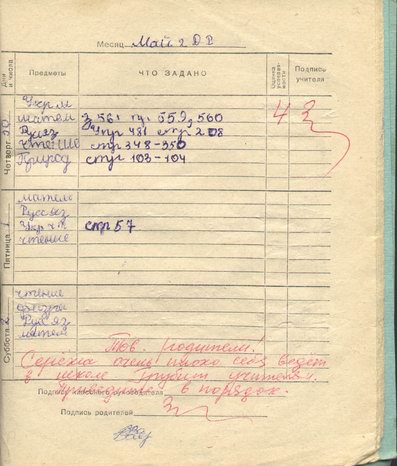 Месяц Май
Дни и числа
Предметы
ЧТО ЗАДАНО
Оценка успеваемости
Подпись учителя
Четверг 30
Укр м
матем з 561 гу. 559, 560 4
Рус яз Упр 481 стр 208
чтение стр 348-350
Природ стр 103-104
Пятница 1
матем
Рус яз
Укр
чтение стр 57
Суббота 2
чтение
физку
Рус яз
матем
Тов. родители!
Сережа очень плохо себя ведёт
в школе. Грубит учителям.
Приведите в порядок.
Подпись классного руководителя
Подпись родителей